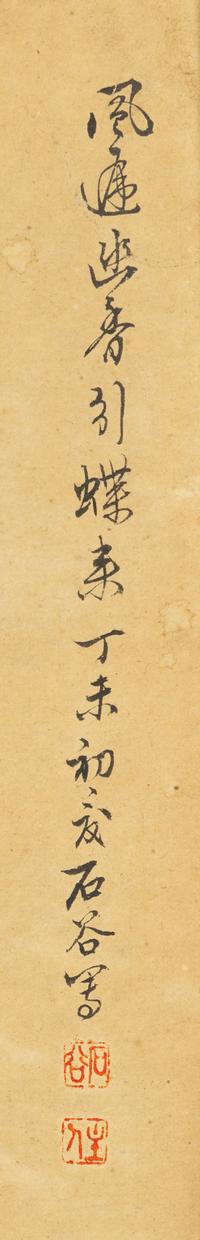 風遞幽香引蝶來丁未初夏石谷寫
石谷